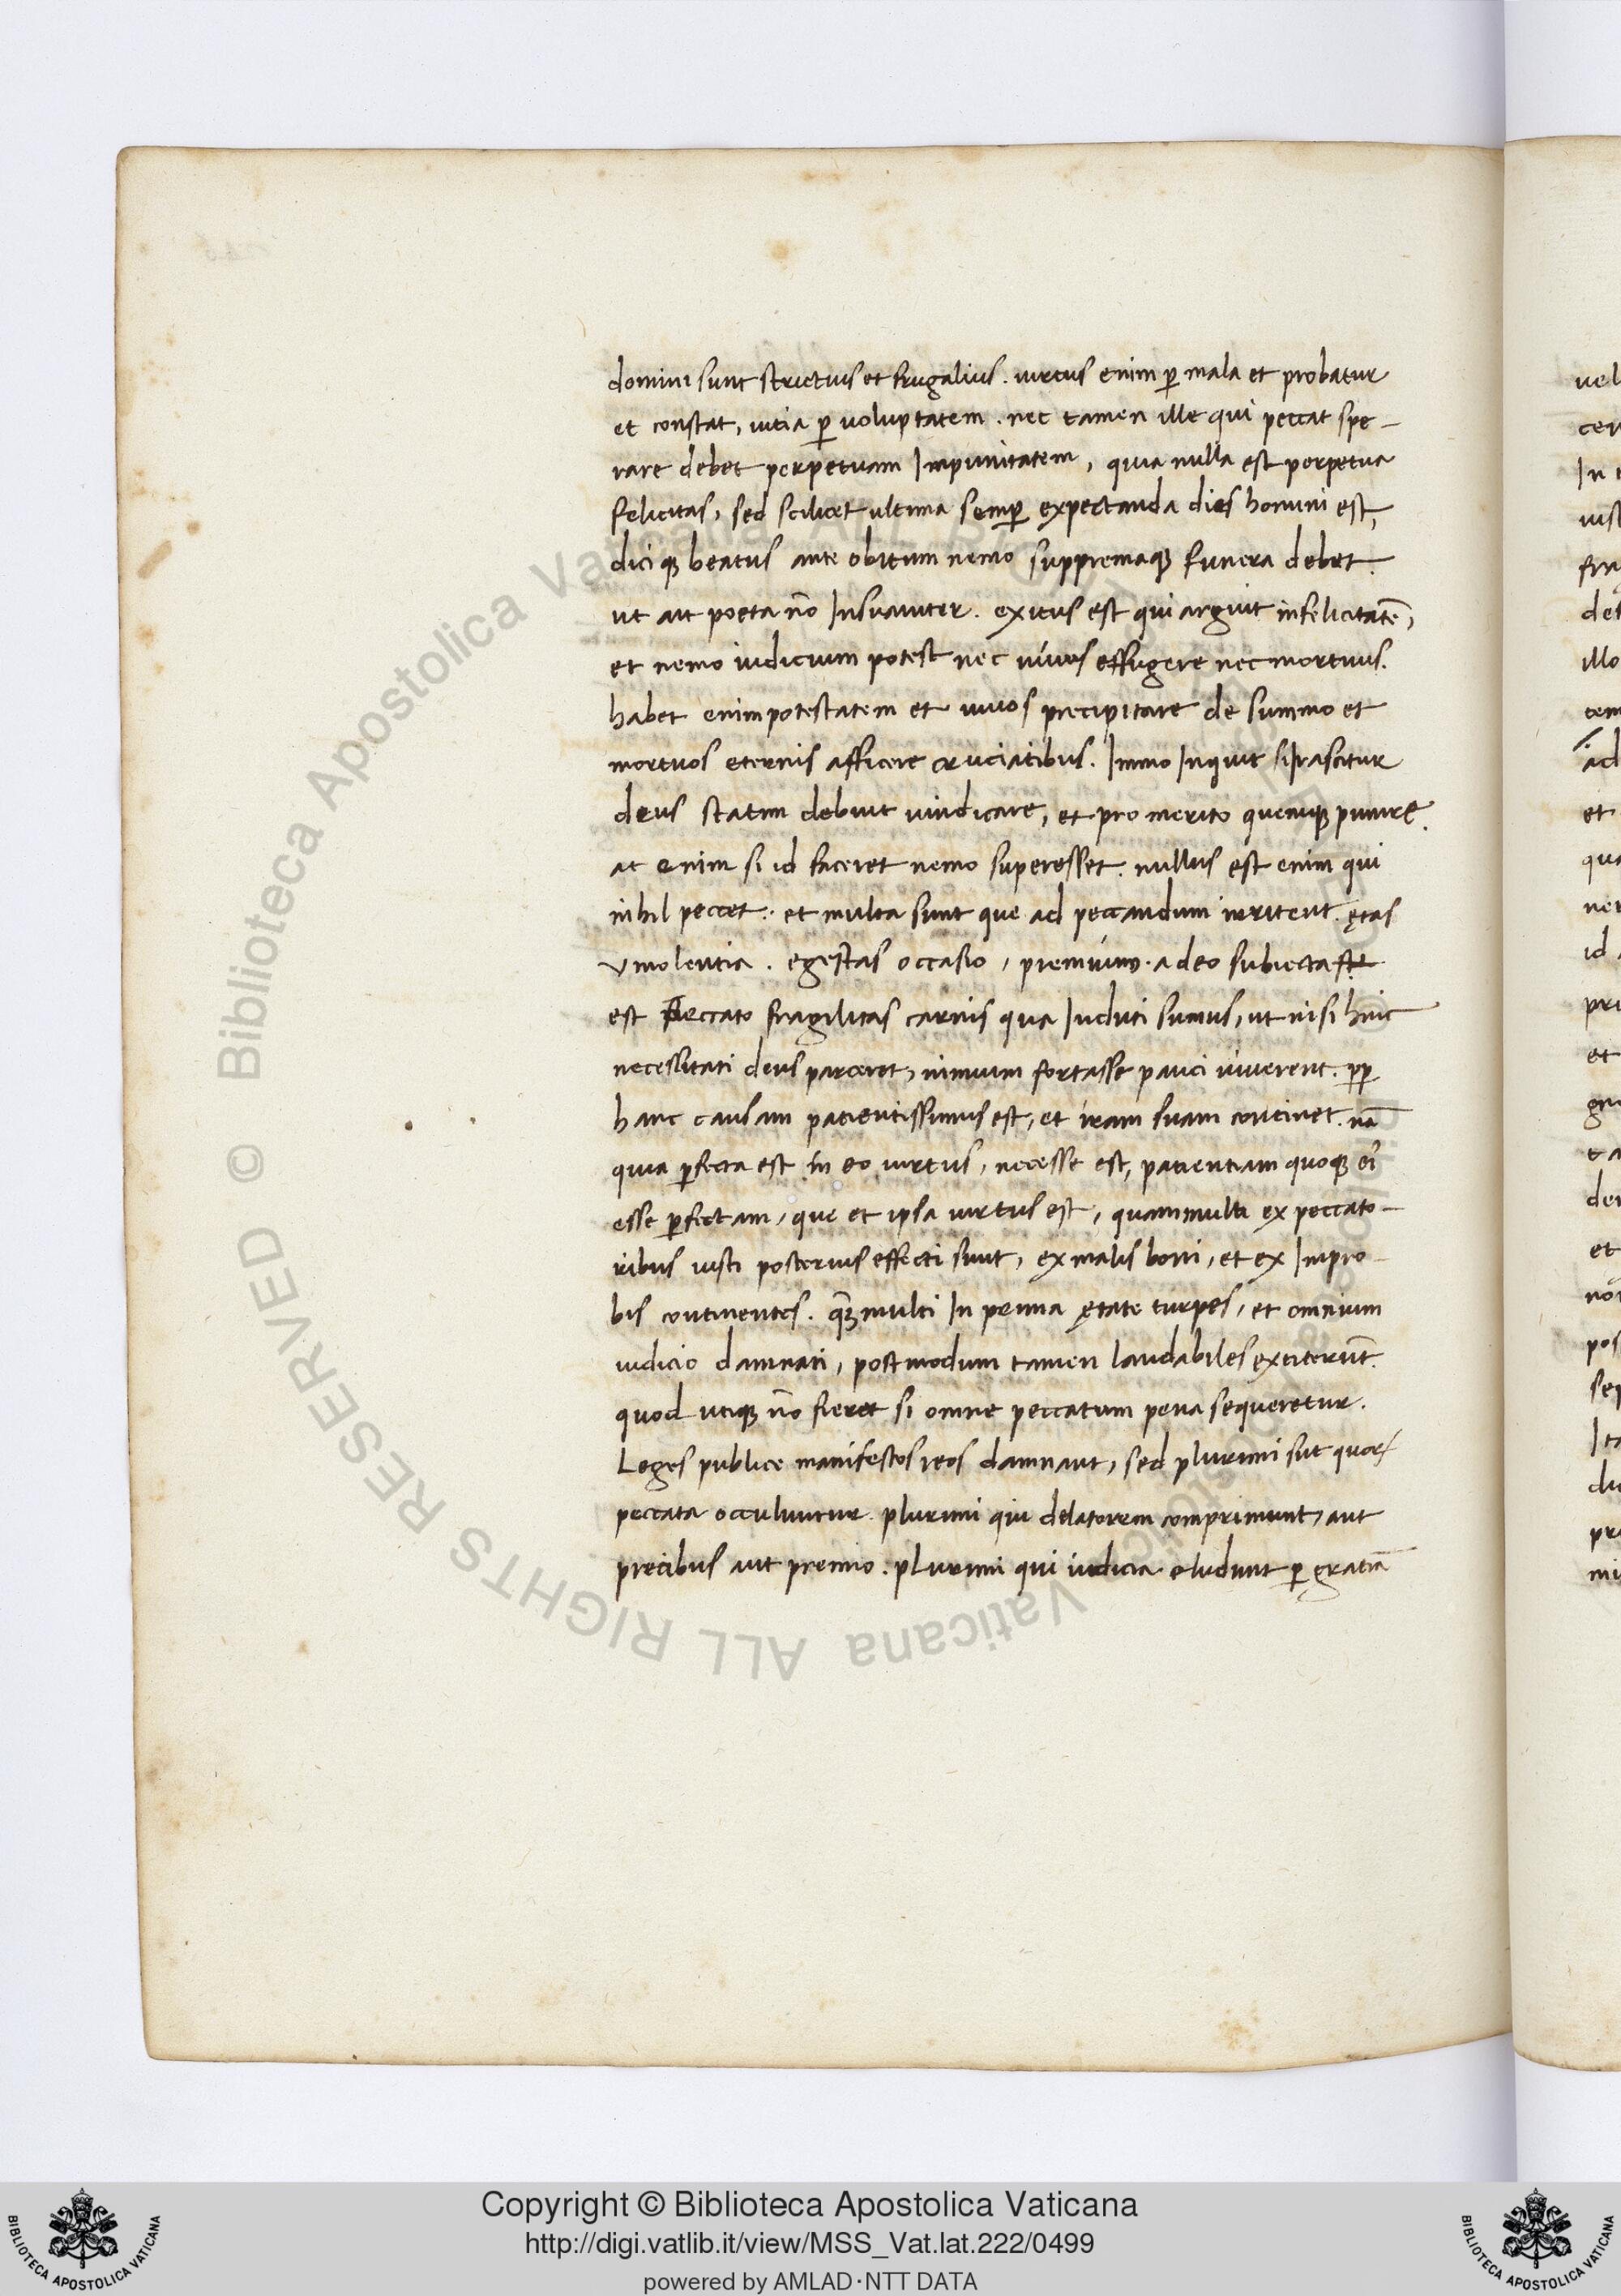 domini sunt strictius et frugalius. uirtus enim p̱ mala et probatur
et constat, uitia p̱ uoluptatem. nec tamen ille qui peccat spe-
rare debet perpetuam Impunitatem, quia nulla est perpetua
felicitas, sed scilicet ultima semp̱ expectanda dies homini est,
diciqꝫ beatus ante obitum nemo suppremaqꝫ funera debet.
ut ait poeta nõ Insuauiter. exitus est qui arguit infelicitatẽ,
et nemo iudicium potest nec uiuus effugere nec mortuus.
habet enim potestatem et uiuos precipitare de summo et
mortuos eternis afficere cruciatibus. Immo Inquit si Irascitur
deus statim debuit uindicare, et pro merito quemqꝫ punire.
at enim si id faceret nemo superesset. nullus est enim qui
nihil peccet. et multa sunt que ad peccandum irritent. ętas
uinolentia. egestas occasio, premium. adeo subiecta
est Peccato fragilitas carnis qua Induti sumus, ut nisi huic
necessitati deus parceret, nimium fortasse pauci uiuerent. pp̱
hanc causam patientissimus est, et iram suam continet. nã
quia p̱fecta est in eo uirtus, necesse est, patientiam quoqꝫ ei
esse p̱fectam, que et ipsa uirtus est, quam multi ex peccato-
ribus iusti posterius effecti sunt, ex malis boni, et ex Impro-
bis continentes. qꝫ multi In prima ętate turpes, et omnium
iudicio damnati, postmodum tamen laudabiles extiterũt.
quod utiqꝫ nõ fieret si omne peccatum pena sequeretur.
Leges publice manifestos reos damnant, sed plurimi sut quoꝝ
peccata occuluntur. plurimi qui delatorem comprimunt, aut
precibus aut premio. plurimi qui iudicia eludunt p̱ gratiã
Biblioteca Apostolica Vaticana ALL RIGHTS RESERVED ©
Copyright © Biblioteca Apostolica Vaticana
http://digi.vatlib.it/view/MSS_Vat.lat.222/0499
powered by AMLAD·NTT DATA
BIBLIOTECA APOSTOLICA VATICANA
BIBLIOTECA APOSTOLICA VATICANA